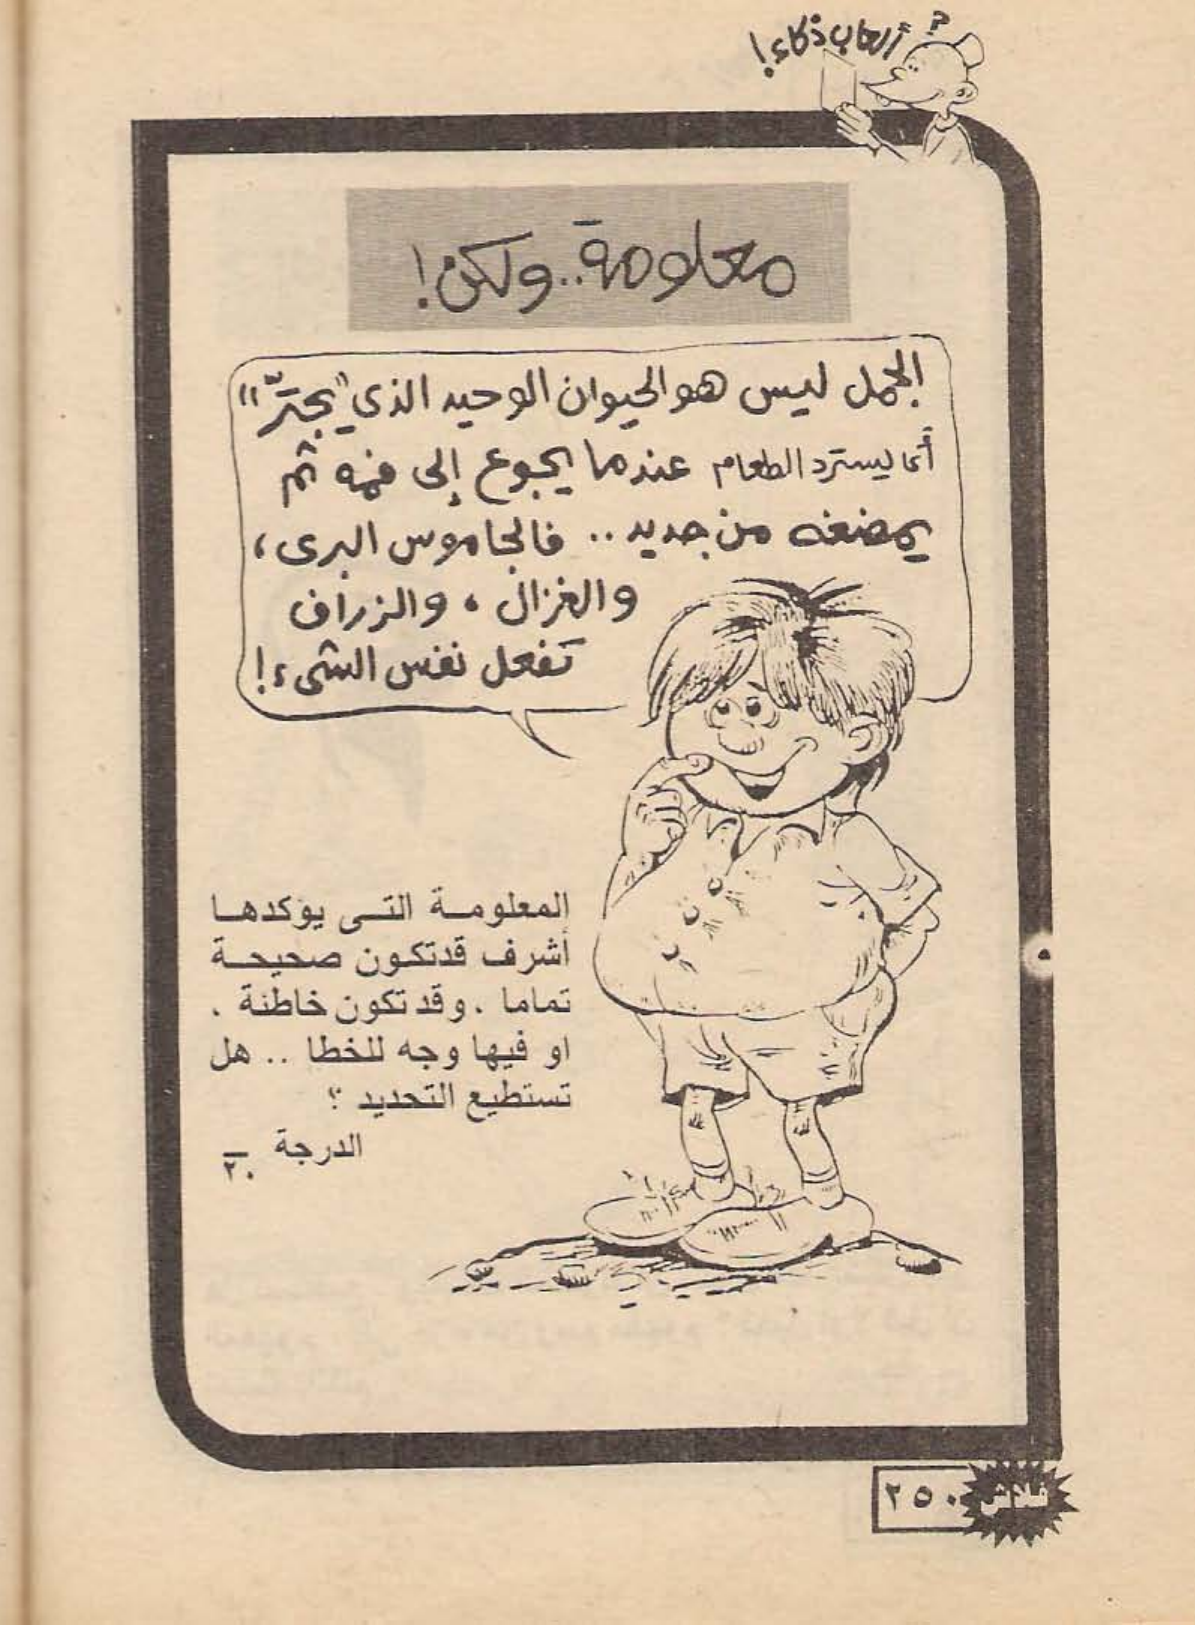 ألعاب ذكاء!
?
معلومة..ولكن!
الجمل ليس هو الحيوان الوحيد الذي "يجترّ"
أى يسترد الطعام عندما يجوع إلى فمه ثم
يمضغه من جديد .. فالجاموس البرى،
والغزال، والزراف
تفعل نفس الشىء!
المعلومة التى يؤكدها
أشرف قد تكون صحيحة
تماما ، وقد تكون خاطئة ،
او فيها وجه للخطا .. هل
تستطيع التحديد ؟
الدرجة ٢٠
فلاش
٢٥٠